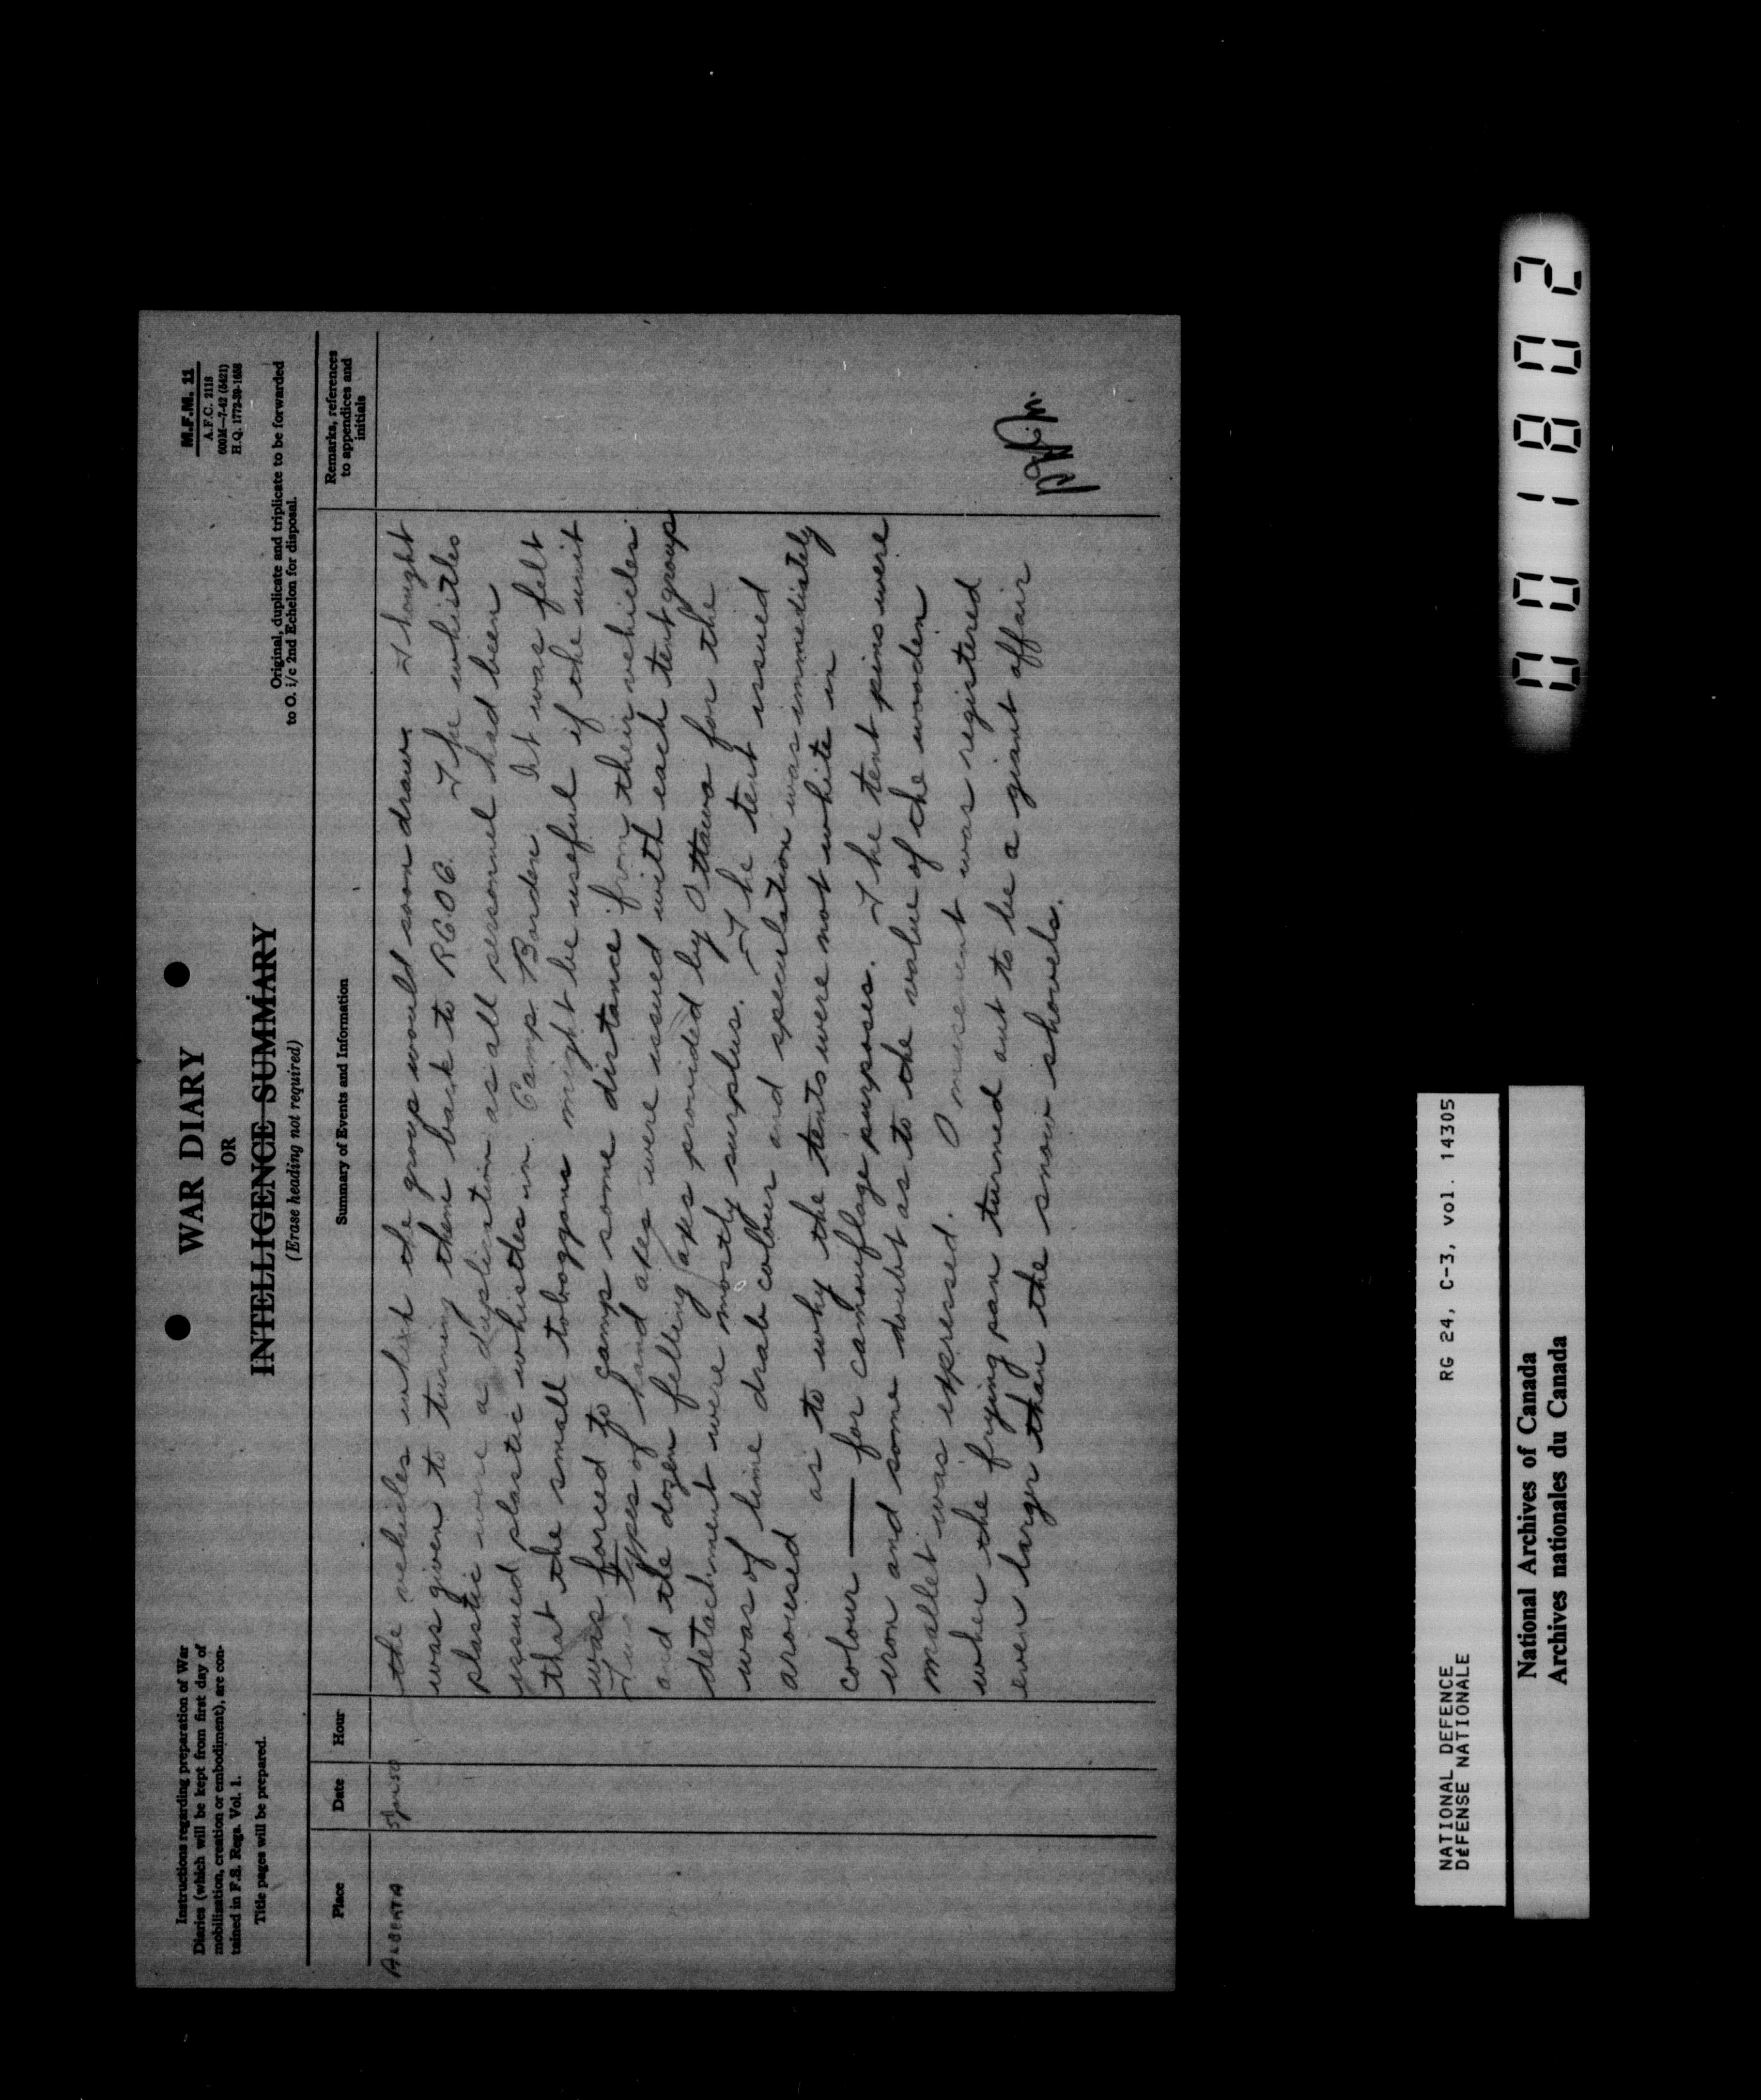 Instructions regarding preparation of War
Diaries (which will be kept from first day of
mobilization, creation or embodiment), are con-
tained in F.S. Regs. Vol. 1.
Title pages will be prepared.
WAR DIARY
OR
INTELLIGENCE SUMMARY
(Erase heading not required)
M.F.M. 11
A.F.C. 2118
600M—7-42 (5421)
H.Q. 1772-39-1658
Original, duplicate and triplicate to be forwarded
to O. i/c 2nd Echelon for disposal.
Place
Date
Hour
Summary of Events and Information
Remarks, references
to appendices and
initials
ALBERTA
5 Jan 50
the vehicles which the group would soon draw. Thought
was given to turning them back to RCOC. The whistles
plastic were a duplication as all personnel had been
issued plastic whistles in Camp Borden. It was felt
that the small toboggans might be useful if the unit
was forced to camp some distance from their vehicles.
Two types of hand axes were issued with each tent group
and the dozen felling axes provided by Ottawa for the
detachment were mostly surplus. The tent issued
was of lime drab colour and speculation was immediately
aroused as to why the tents were not white in
colour — for camouflage purposes. The tent pins were
iron and some doubt as to the value of the wooden
mallet was expressed. Amusement was registered
when the frying pan turned out to be a giant affair
even larger than the snow shovels.
NATIONAL DEFENCE
DEFENSE NATIONALE
RG 24, C-3, vol. 14305
National Archives of Canada
Archives nationales du Canada
001802